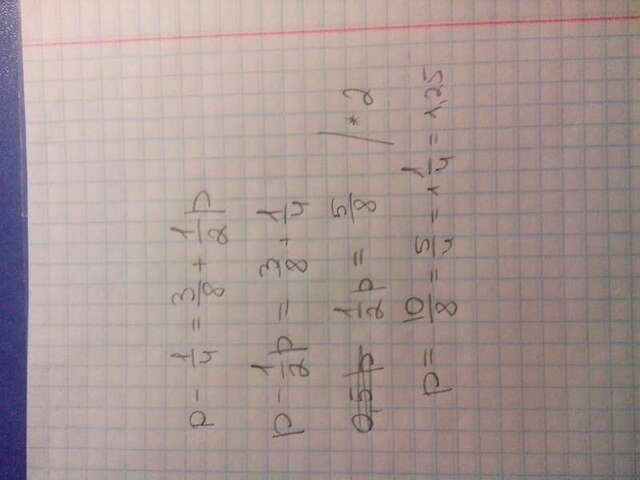 p - 1/4 = 3/8 + 1/2 p
p - 1/2 p = 3/8 + 1/4
0,5 p 1/2 p = 5/8 / * 2
p = 10/8 = 5/4 = 1 1/4 = 1,25